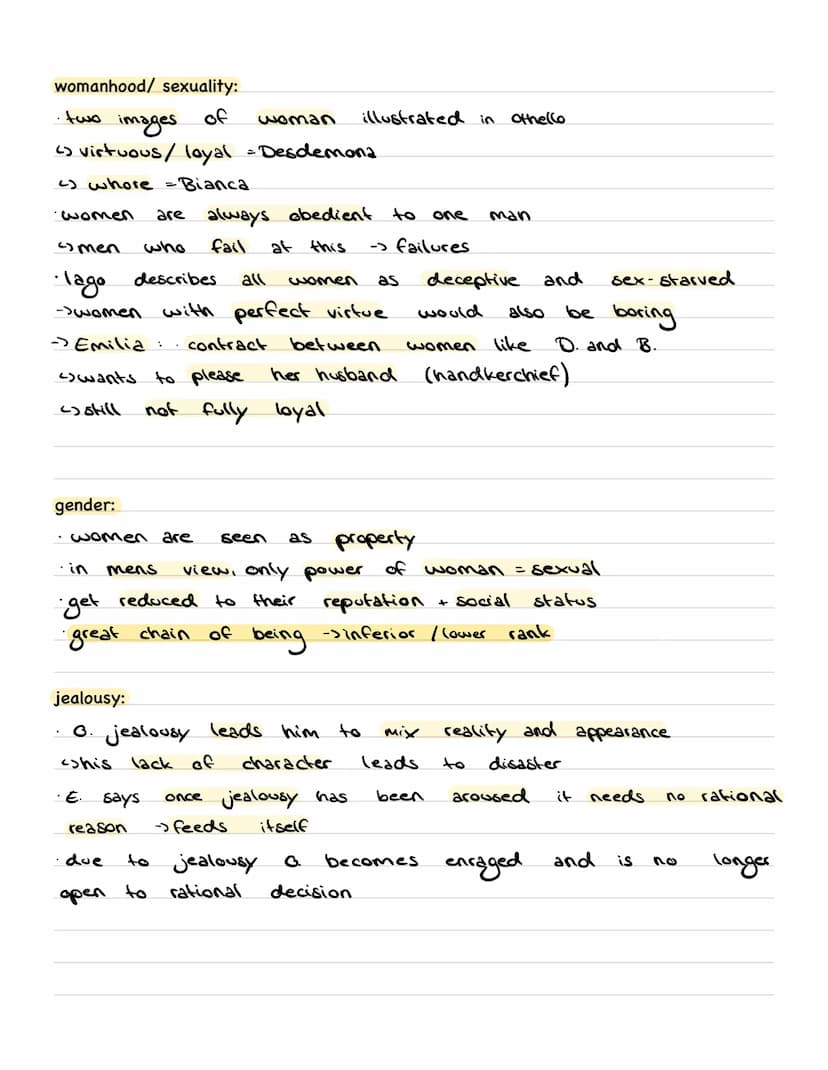 womanhood/ sexuality:
· two images of woman illustrated in Othello
↳ virtuous/ loyal = Desdemona
↳ whore = Bianca
· women are always obedient to one man
↳ men who fail at this -> failures
· Iago describes all women as deceptive and sex-starved
-> women with perfect virtue would also be boring
-> Emilia : · contract between women like D. and B.
↳ wants to please her husband (handkerchief)
↳ still not fully loyal
gender:
· women are seen as property
· in mens view, only power of woman = sexual
· get reduced to their reputation + social status
· great chain of being -> inferior / lower rank
jealousy:
· O. jealousy leads him to mix reality and appearance
↳ his lack of character leads to disaster
· E. says once jealousy has been aroused it needs no rational
reason -> feeds itself
· due to jealousy O. becomes enraged and is no longer
open to rational decision